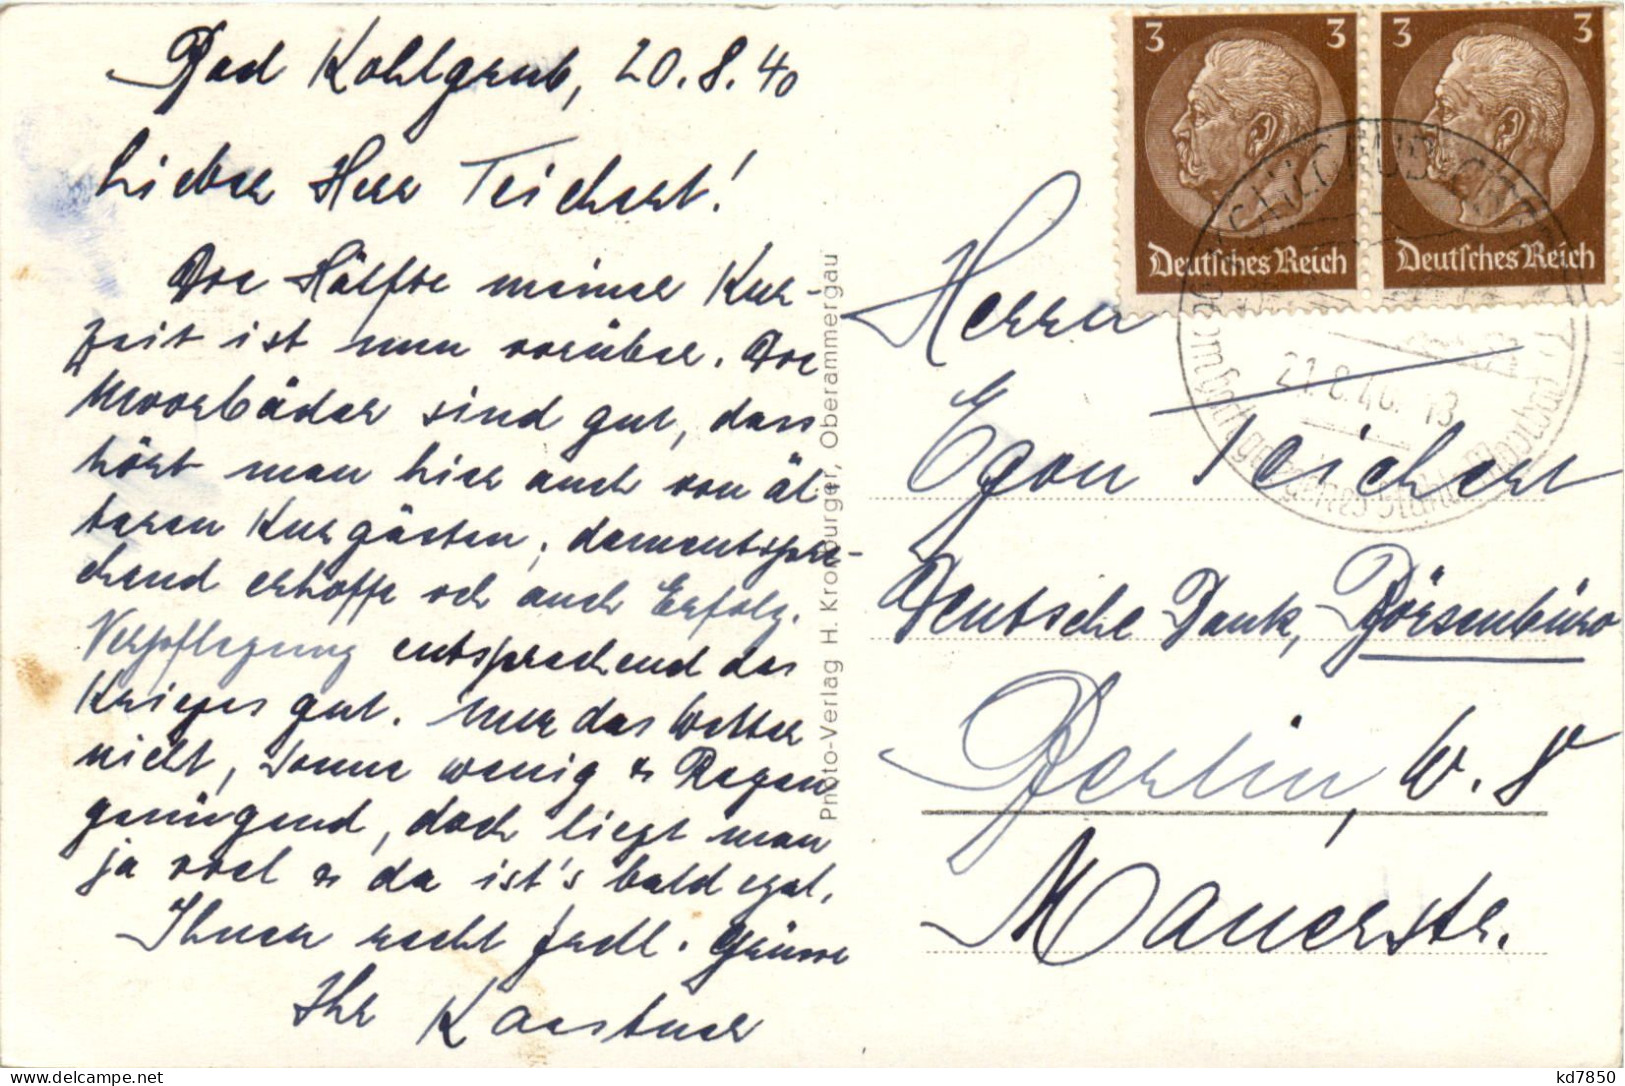 Bad Kohlgrub, 20.8.40
Lieber Herr Teichert!
Die Hälfte meiner Kur-
zeit ist nun vorüber. Die
Moorbäder sind gut, dass
hört man hier auch von äl-
teren Kurgästen, dementspre-
chend erhoffe ich auch Erfolg.
Verpflegung entsprechend des
Krieges gut. Nur das Wetter
nicht, Sonne wenig & Regen
genügend, doch liegt man
ja viel & da ist's bald egal.
Ihnen recht frdl. Grüsse
Ihr Kaestner
Photo-Verlag H. Kronburger, Oberammergau
3 3
Deutsches Reich
3 3
Deutsches Reich
21.8.40. 18
Herrn
Egon Teichert
Deutsche Bank, Börsenbüro
Berlin, W. 8
Mauerstr.
kd7850